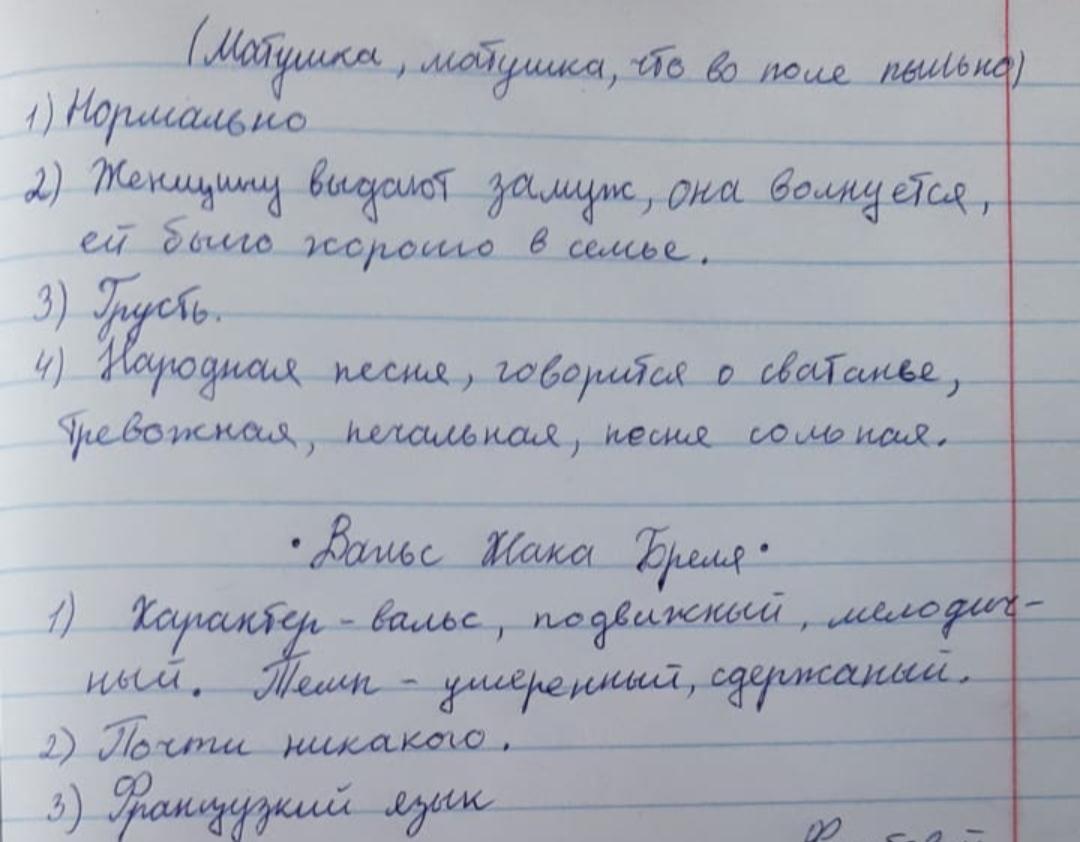 (Матушка, матушка, что во поле пыльно)
1) Нормально
2) Женщину выдают замуж, она волнуется,
ей было хорошо в семье.
3) Грусть.
4) Народная песня, говорится о сватанье,
тревожная, печальная, песня сольная.
• Вальс Жака Бреля •
1) Характер - вальс, подвижный, мелодич-
ный. Темп - умеренный, сдержаный.
2) Почти никакого.
3) Французкий язык